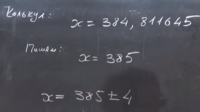 Калькул:
x = 384,811645
Пишем:
x = 385
x = 385 ± 4